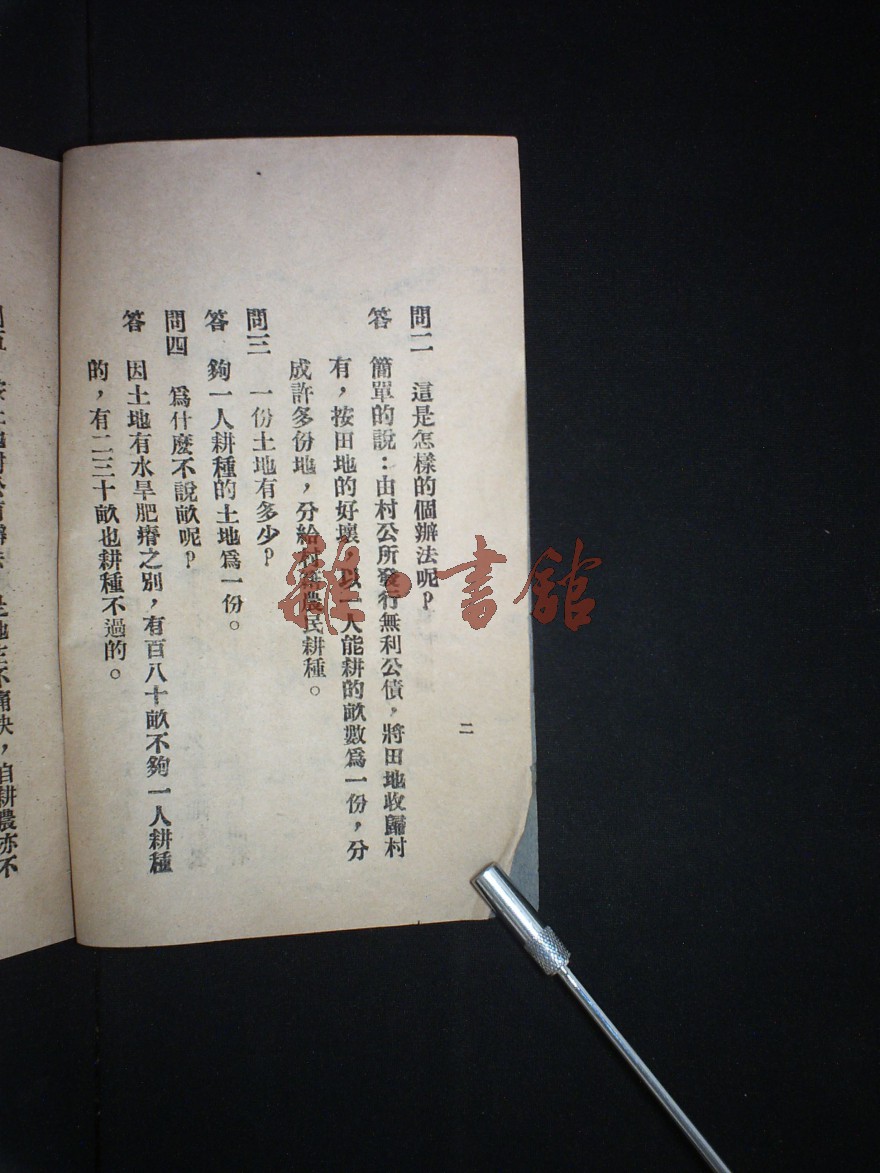 問二　這是怎樣的個辦法呢？
答　簡單的說：由村公所發行無利公債，將田地收歸村
有，按田地的好壞，以一人能耕的畝數爲一份，分
成許多份地，分給村籍農民耕種。
問三　一份土地有多少？
答　夠一人耕種的土地爲一份。
問四　爲什麽不說畝呢？
答　因土地有水旱肥瘠之別，有百八十畝不夠一人耕種
的，有二三十畝也耕種不過的。
二
雜·書館